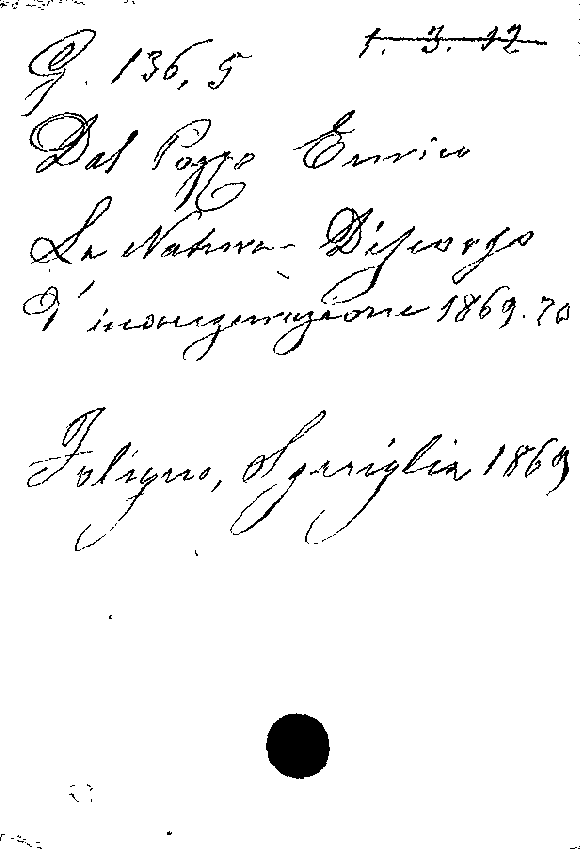 G. 136, 5 1. 3. 12
Dal Pozzo Enrico
La Natura - Discorso
d'inaugurazione 1869.70
Foligno, Sgariglia 1869